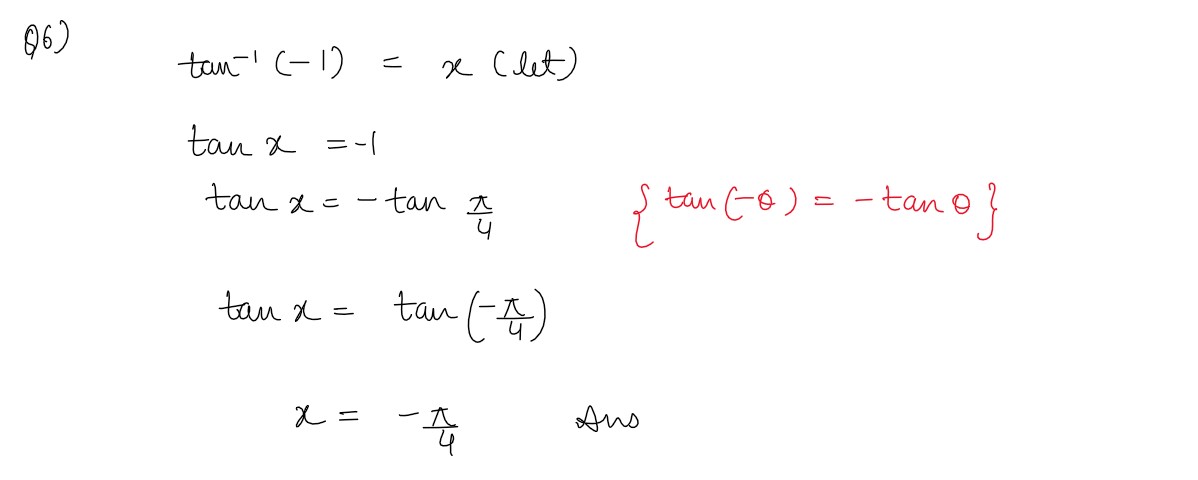 Q6)
tan⁻¹ (-1) = x (let)
tan x = -1
tan x = - tan π/4 { tan (-θ) = - tan θ }
tan x = tan (-π/4)
x = - π/4 Ans